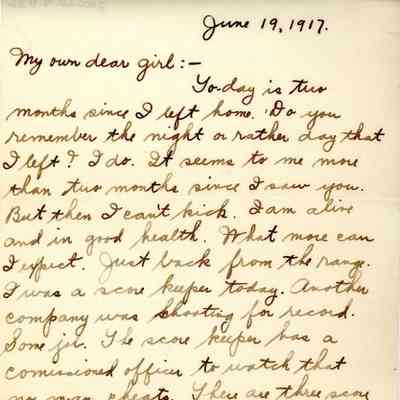 June 19, 1917.
My own dear girl:—
To-day is two
months since I left home. Do you
remember the night or rather day that
I left? I do. It seems to me more
than two months since I saw you.
But then I can't kick. I am alive
and in good health. What more can
I expect. Just back from the range.
I was a score keeper today. Another
company was shooting for record.
Some job. The score keeper has a
comissioned officer to watch that
no man cheats. There are three score